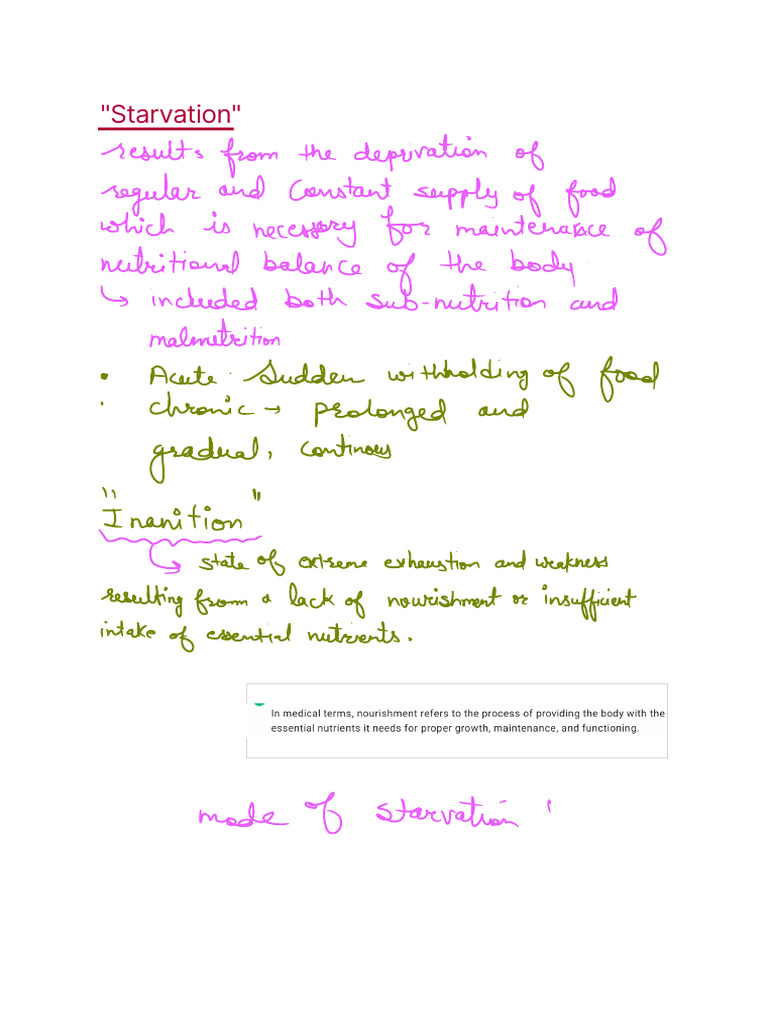 "Starvation"
results from the deprivation of
regular and constant supply of food
which is necessary for maintenance of
nutritional balance of the body
↳ included both sub-nutrition and
malnutrition
• Acute · Sudden withholding of food
· chronic → prolonged and
gradual, continous
"Inanition"
↳ state of extreme exhaustion and weakness
resulting from a lack of nourishment or insufficient
intake of essential nutrients.
In medical terms, nourishment refers to the process of providing the body with the
essential nutrients it needs for proper growth, maintenance, and functioning.
mode of starvation '